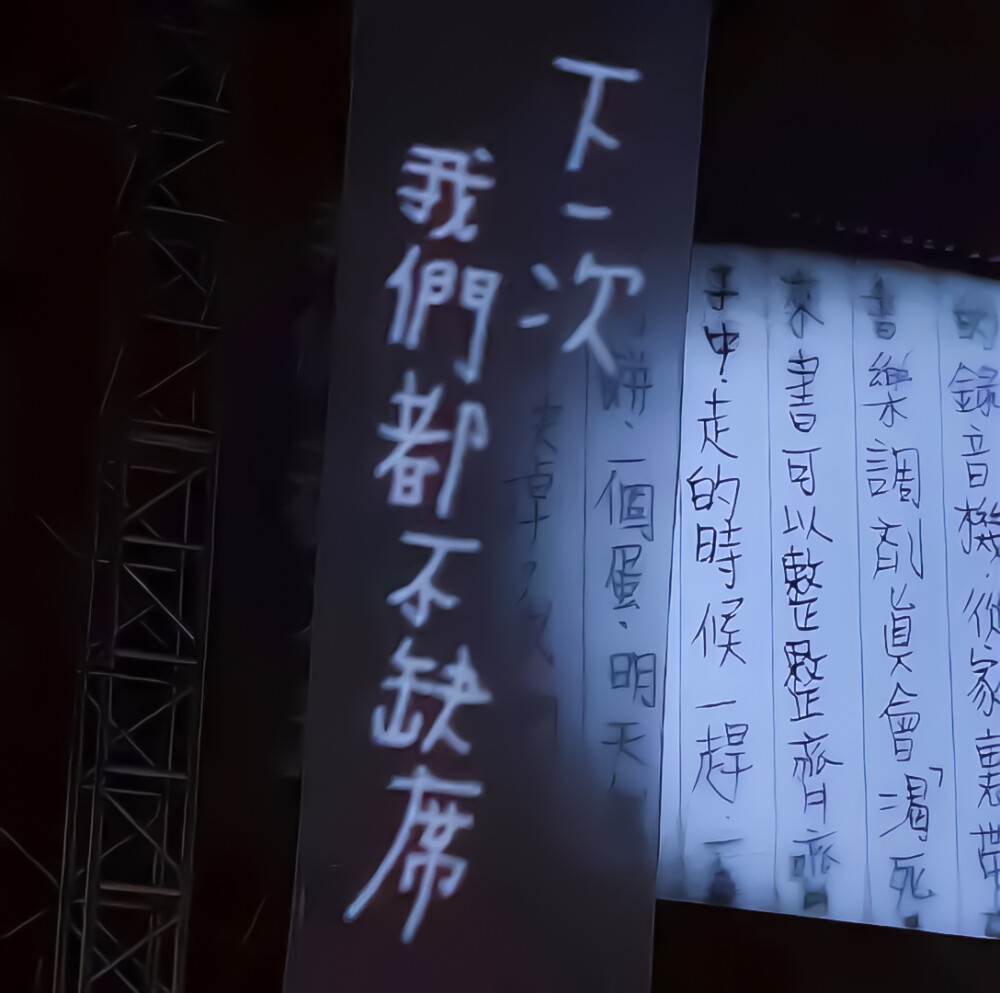 下一次
我們都不缺席
的錄音機.從家裏帶
音樂調劑真會「渴死
來書可以整整齊齊
子中.走的時候一趕.一
妍.一個蛋.明天